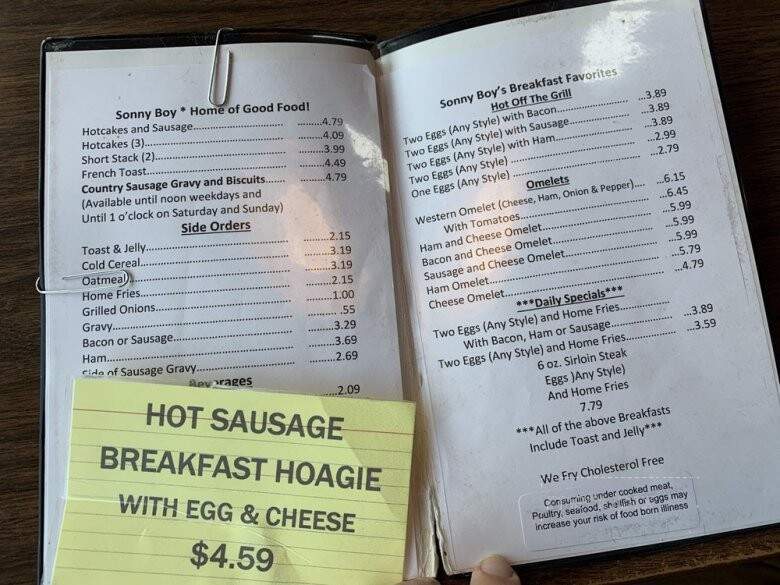 Sonny Boy * Home of Good Food!
Hotcakes and Sausage..........4.79
Hotcakes (3)..........4.09
Short Stack (2)..........3.99
French Toast..........4.49
Country Sausage Gravy and Biscuits..........4.79
(Available until noon weekdays and
Until 1 o'clock on Saturday and Sunday)
Side Orders
Toast & Jelly..........2.15
Cold Cereal..........3.19
Oatmeal..........3.19
Home Fries..........2.15
Grilled Onions..........1.00
Gravy...........55
Bacon or Sausage..........3.29
Ham..........3.69
Side of Sausage Gravy..........2.69
Beverages
..........2.09
HOT SAUSAGE
BREAKFAST HOAGIE
WITH EGG & CHEESE
$4.59
Sonny Boy's Breakfast Favorites
Hot Off The Grill
Two Eggs (Any Style) with Bacon..........3.89
Two Eggs (Any Style) with Sausage..........3.89
Two Eggs (Any Style) with Ham..........3.89
Two Eggs (Any Style)..........2.99
One Eggs (Any Style)..........2.79
Omelets
Western Omelet (Cheese, Ham, Onion & Pepper)....6.15
With Tomatoes..........6.45
Ham and Cheese Omelet..........5.99
Bacon and Cheese Omelet..........5.99
Sausage and Cheese Omelet..........5.99
Ham Omelet..........5.79
Cheese Omelet..........4.79
***Daily Specials***
Two Eggs (Any Style) and Home Fries..........
With Bacon, Ham or Sausage..........3.89
Two Eggs (Any Style) and Home Fries..........3.59
6 oz. Sirloin Steak
Eggs )Any Style)
And Home Fries
7.79
***All of the above Breakfasts
Include Toast and Jelly***
We Fry Cholesterol Free
Consuming under cooked meat,
Poultry, seafood, shellfish or eggs may
increase your risk of food born illness